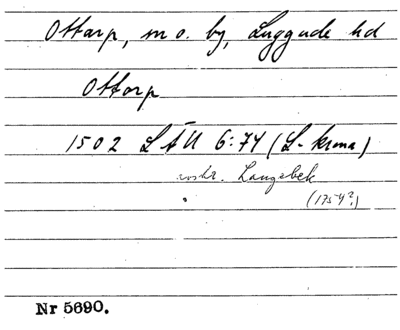 Ottarp, m o. by, Luggude hd
Ottorp
1502 LÄU 6:74 (L-krona)
avskr. Langebek
(1754?)
Nr 5690.